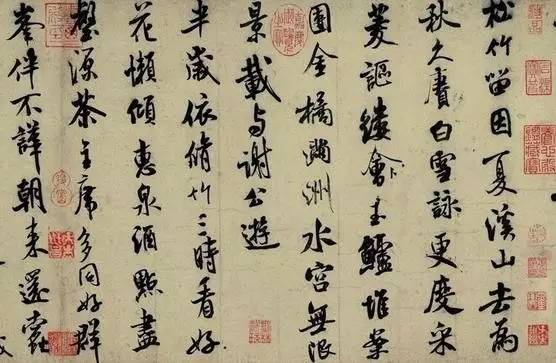 松竹留因夏溪山去為
秋久賡白雪詠更度采
菱謳縷會玉鱸堆案
團金橘滿洲水宮無限
景載与謝公遊
半歲依脩竹三時看好
花懶傾惠泉酒點盡
壑源茶主席多同好群
峯伴不譁朝来還蠹